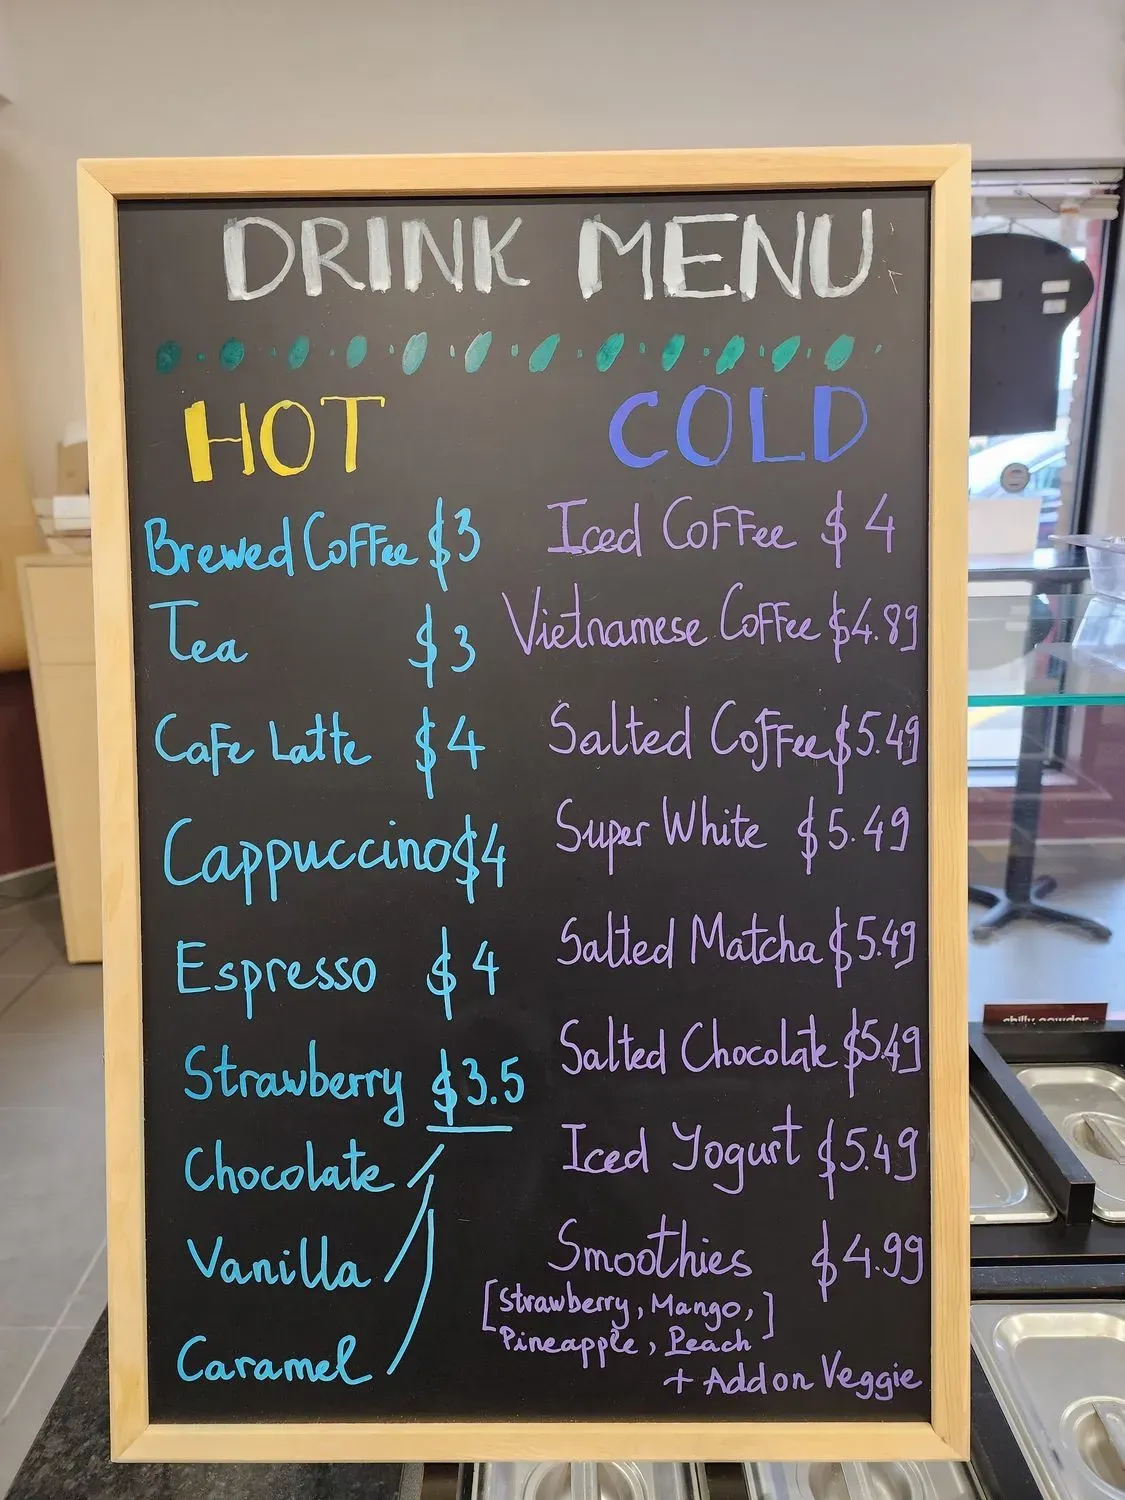 DRINK MENU
HOT
Brewed Coffee $3
Tea $3
Cafe Latte $4
Cappuccino $4
Espresso $4
Strawberry $3.5
Chocolate
Vanilla
Caramel
COLD
Iced Coffee $4
Vietnamese Coffee $4.89
Salted Coffee $5.49
Super White $5.49
Salted Matcha $5.49
Salted Chocolate $5.49
Iced Yogurt $5.49
Smoothies $4.99
[Strawberry, Mango,]
Pineapple, Peach
+ Add on Veggie
chilly powder